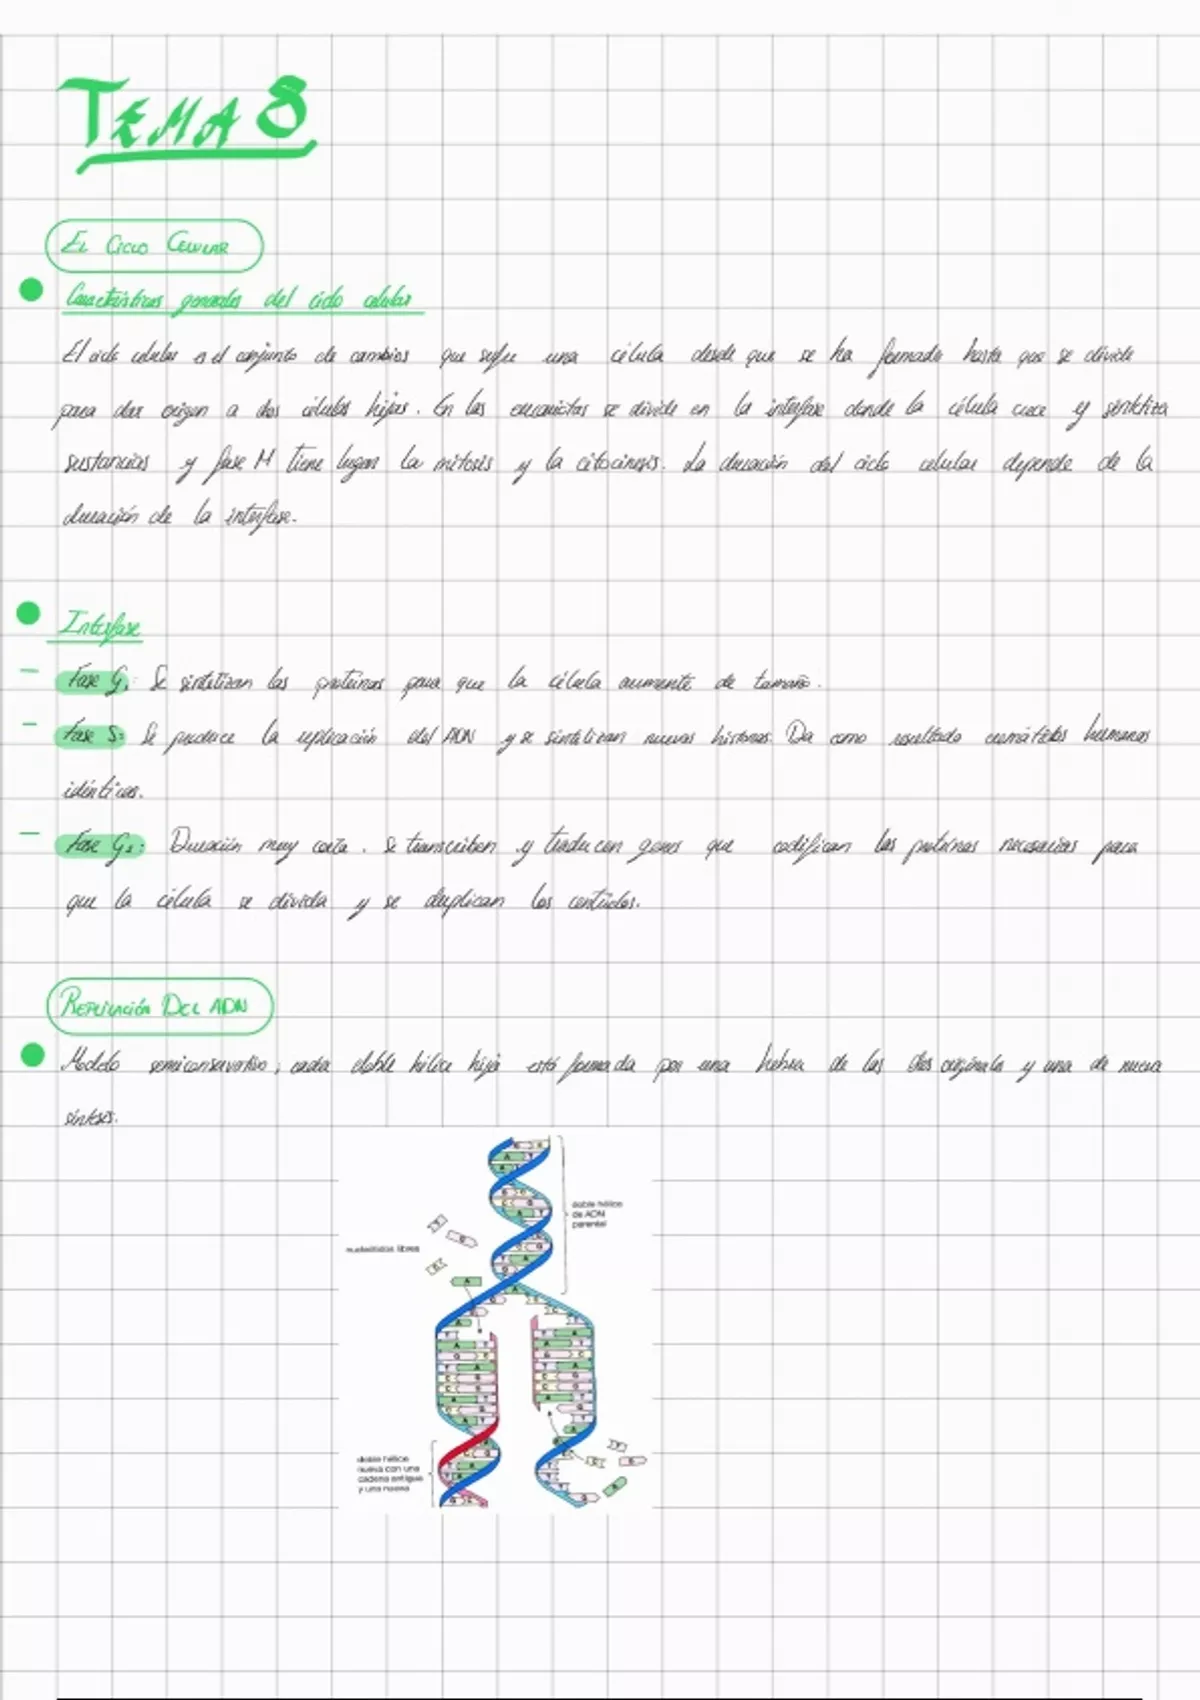 TEMA 8
EL CICLO CELULAR
Características generales del ciclo celular
El ciclo celular es el conjunto de cambios que sufre una célula desde que se ha formado hasta que se divide
para dar origen a dos células hijas. En las eucariotas se divide en la interfase donde la célula crece y sintetiza
sustancias y fase M tiene lugar la mitosis y la citocinesis. La duración del ciclo celular depende de la
duración de la interfase.
Interfase
- Fase G1: Se sintetizan las proteínas para que la célula aumente de tamaño.
- Fase S: Se produce la replicación del ADN y se sintetizan nuevas histonas. Da como resultado cromátidas hermanas
idénticas.
- Fase G2: Duración muy corta. Se transcriben y traducen genes que codifican las proteínas necesarias para
que la célula se divida y se duplican los centriolos.
REPLICACIÓN DEL ADN
Modelo semiconservativo; cada doble hélice hija está formada por una hebra de las dos originales y una de nueva
síntesis.
doble hélice
de ADN
parental
nucleótidos libres
doble hélice
nueva con una
cadena antigua
y una nueva